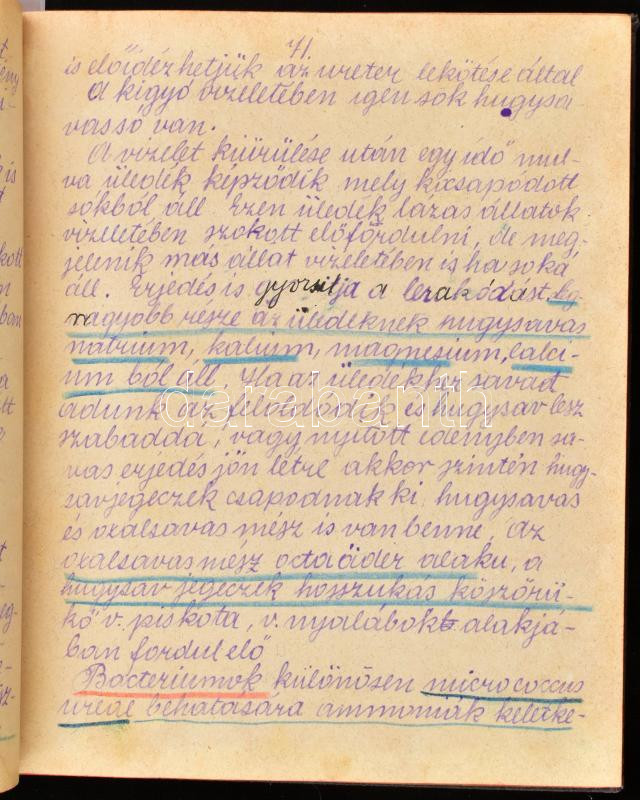 71.
is előidézhetjük az ureter lekötése által
A kigyó vizeletében igen sok hugysa-
vas só van.
A vizelet kiürülése után egy idő mul-
va üledék képződik mely kicsapódott
sokból áll. Ezen üledék lázas állatok
vizeletében szokott előfordulni, de meg-
jelenik más állat vizeletében is ha soká
áll. Erjedés is gyorsitja a lerakódást. Leg-
nagyobb része az üledéknek hugysavas
natrium, kalium, magnesium, calci-
um ból áll. Ha az üledékhez savat
adunk az feloldódik és hugysav lesz
szabaddá, vagy nyitott edényben sa-
vas erjedés jön létre akkor szintén hugy-
savjegeczek csapodnak ki, hugysavas
és oxalsavas mész is van benne, az
oxalsavas mész octaäder alaku, a
hugysav jegeczek hosszukás köszörü-
kő v. piskota, v. nyalábok alakjá-
ban fordul elő
Bacteriumok különösen micrococcus
ureae behatására ammoniak keletke-
darabanth